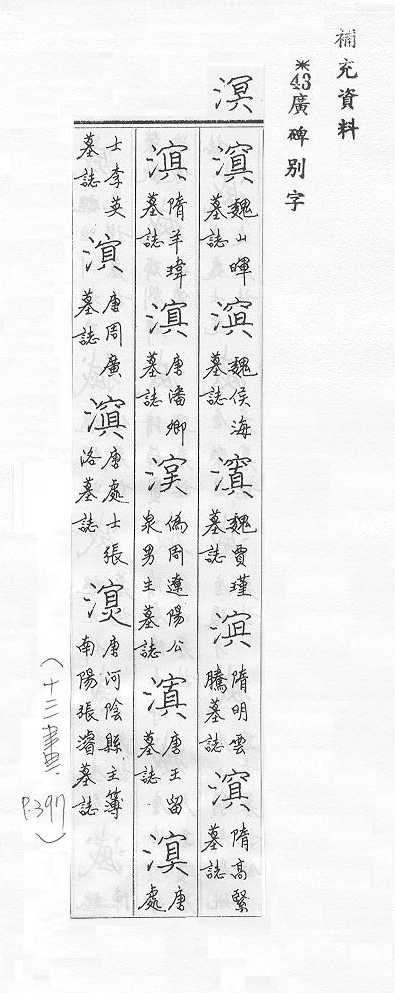 補充資料
*43廣碑别字
溟
魏山暉墓誌 魏侯海墓誌 魏賈瑾墓誌 隋明雲騰墓誌 隋高緊墓誌
隋羊瑋墓誌 唐潘卿墓誌 偽周遼陽公泉男主墓誌 唐王留墓誌 唐處
士李英墓誌 唐周廣墓誌 唐處士張洛墓誌 唐河陰縣主簿南陽張濬墓誌
(十三畫 P.397)